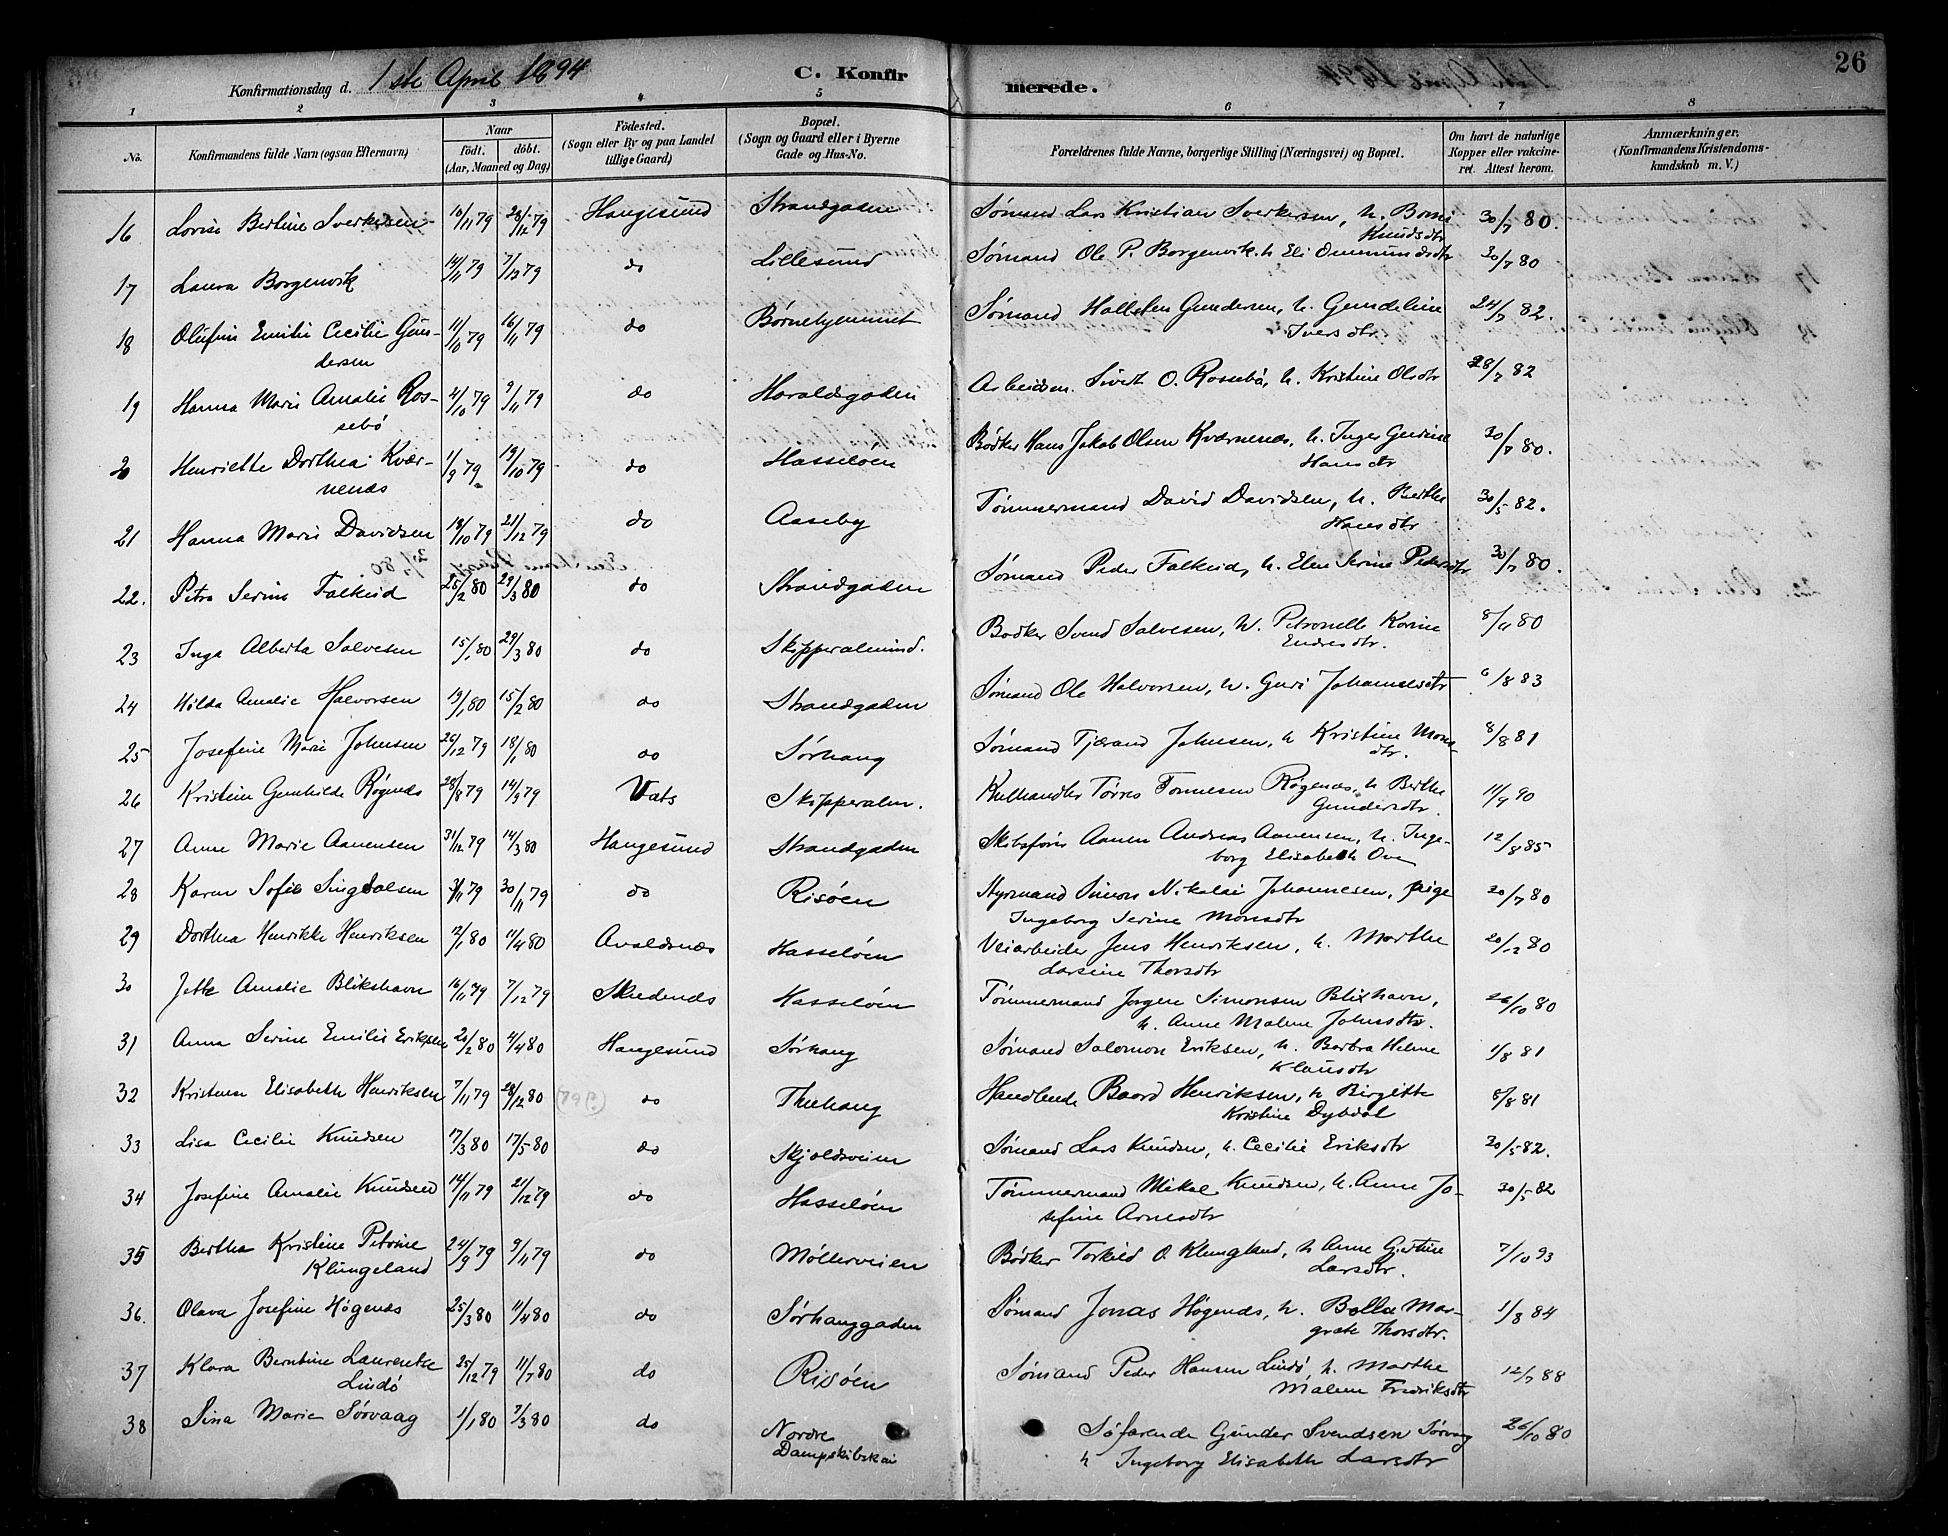 26
Konfirmationsdag d. 1ste April 1894
C. Konfirmerede.
1 2 3 4 5 6 7 8
No. Konfirmandens fulde Navn (ogsaa Efternavn) Naar födt. döbt. (Aar, Maaned og Dag) Födested. (Sogn eller By og paa Landet tillige Gaard) Bopæl. (Sogn og Gaard eller i Byerne Gade og Hus-No. Forældrenes fulde Navne, borgerlige Stilling (Næringsvei) og Bopæl. Om havt de naturlige Kopper eller vakcineret. Attest herom. Anmærkninger. (Konfirmandens Kristendomskundskab m. V.)
16 Lovise Bertine Sverkesen 10/11 79 28/12 79 Haugesund Strandgaden Sømand Lars Kristian Sverkersen, h. Knudsdtr 30/7 80.
17 Laura Borgenvik 14/11 79 7/12 79 do Lillesund Sømand Ole P. Borgenvik. h Eli Ommundsdtr 30/7 80
18 Olufine Emilie Cecilie Gun- 11/10 79 16/11 79 do Børnehjemmet Sømand Hallsten Gundersen, h. Gundeline 24/7 82.
dersen Iversdtr.
19 Hanna Marie Amalie Ros- 4/10 79 9/11 79 do Haraldsgaden Arbeidsm. Sivert O. Rossebø, h. Kristine Olsdtr 28/7 82
sebø
20 Henriette Dorthea Kvær- 1/9 79 19/10 79 do Hasseløen Bødker Hans Jakob Olsen Kværnenæs, h. Inger Gurine 30/7 80.
nenæs Hansdtr
21 Hanna Marie Davidsen 18/10 79 21/12 79 do Aaseby Tømmermand David Davidsen, h. Berthe 30/5 82.
Hansdtr
22. Petra Serine Falkeid 25/2 80 29/3 80 do Strandgaden Sømand Peder Falkeid, h Elen Serine Pedersdtr 30/7 80.
23 Inga Alberta Salvesen 15/1 80 29/3 80 do Skipperalmind. Bødker Svend Salvesen, h. Petronelle Karine 8/11 80
Endresdtr.
24 Hilda Amalie Halvorsen 19/1 80 15/2 80 do Strandgaden Sømand Ole Halvorsen, h. Guri Johannesdtr 6/8 83
25 Josefine Marie Johnsen 26/12 79 18/1 80 do Sørhaug Sømand Tjærand Johnsen, h Kristine Mons- 8/8 81
dtr.
26 Kristine Gunhilde Røgenæs 28/8 79 14/9 79 Vats Skipperalm. Kulhandler Tørres Tonnesen Røgenæs, h Berthe 11/9 90
Gundersdtr.
27 Anne Marie Aanensen 31/12 79 14/3 80 Haugesund Strandgaden Skibsfører Aanen Andreas Aanensen, h. Inge- 12/8 85
borg Elisabeth
28 Karen Sofie 30/11 79 do Risøen Styrmand Simon Nikolai Johannesen, pige 20/7 80
Ingeborg Serine Monsdtr
29 Dorthea Henrikke Henriksen 12/1 80 11/4 80 Avaldsnæs Hasseløen Veiarbeider Jens Henriksen, h. Marthe 20/12 80
Larsine Thorsdtr
30 Jette Amalie Blikshavn 16/11 79 7/12 79 Skudenæs Hasseløen Tømmermand Jørgen Simonsen Blixhavn, 26/10 80
h. Anne Malene Johnsdtr.
31 Anna Serine Emilie Eriksen 20/2 80 4/4 80 Haugesund Sørhaug Sømand Salomon Eriksen, h. Barbra Helene 1/8 81
Klausdtr
32 Kristense Elisabeth Henriksen 7/11 79 28/12 80 (79?) do Thuhaug Handlende Baard Henriksen, h Birgitte 8/8 81
Kristine Dybdal
33 Lisa Cecilie Knudsen 17/3 80 17/5 80 do Skjoldsveien Sømand Lars Knudsen, h. Cecilie Eriksdtr 20/5 82.
34 Josefine Amalie Knudsen 14/11 79 21/12 79 do Hasseløen Tømmermand Mikal Knudsen, h. Anne Jo- 30/5 82
sefine Arnesdtr
35 Bertha Kristine Petrine 24/9 79 9/11 79 do Møllerveien Bødker Torkild O. Klungland, h Anne Gjertine 7/10 93
Klungeland Larsdtr.
36. Olava Josefine Høgenæs 25/3 80 11/4 80 do Sørhauggaden Sømand Jonas Høgenæs, h. Bolla Mar- 1/8 84
grete Thorsdtr.
37 Klara Berntine Laurentze 25/12 79 11/7 80 do Risøen Sømand Peder Hansen Lindø, h. Marthe 12/7 88
Lindø Malene Fredriksdtr
38 Sina Marie Sørvaag 1/1 80 7/3 80 do Nordre Søfarende Gunder Svendsen Sørvag 26/10 80
Dampskibskai h Ingeborg Elisabeth Larsdtr